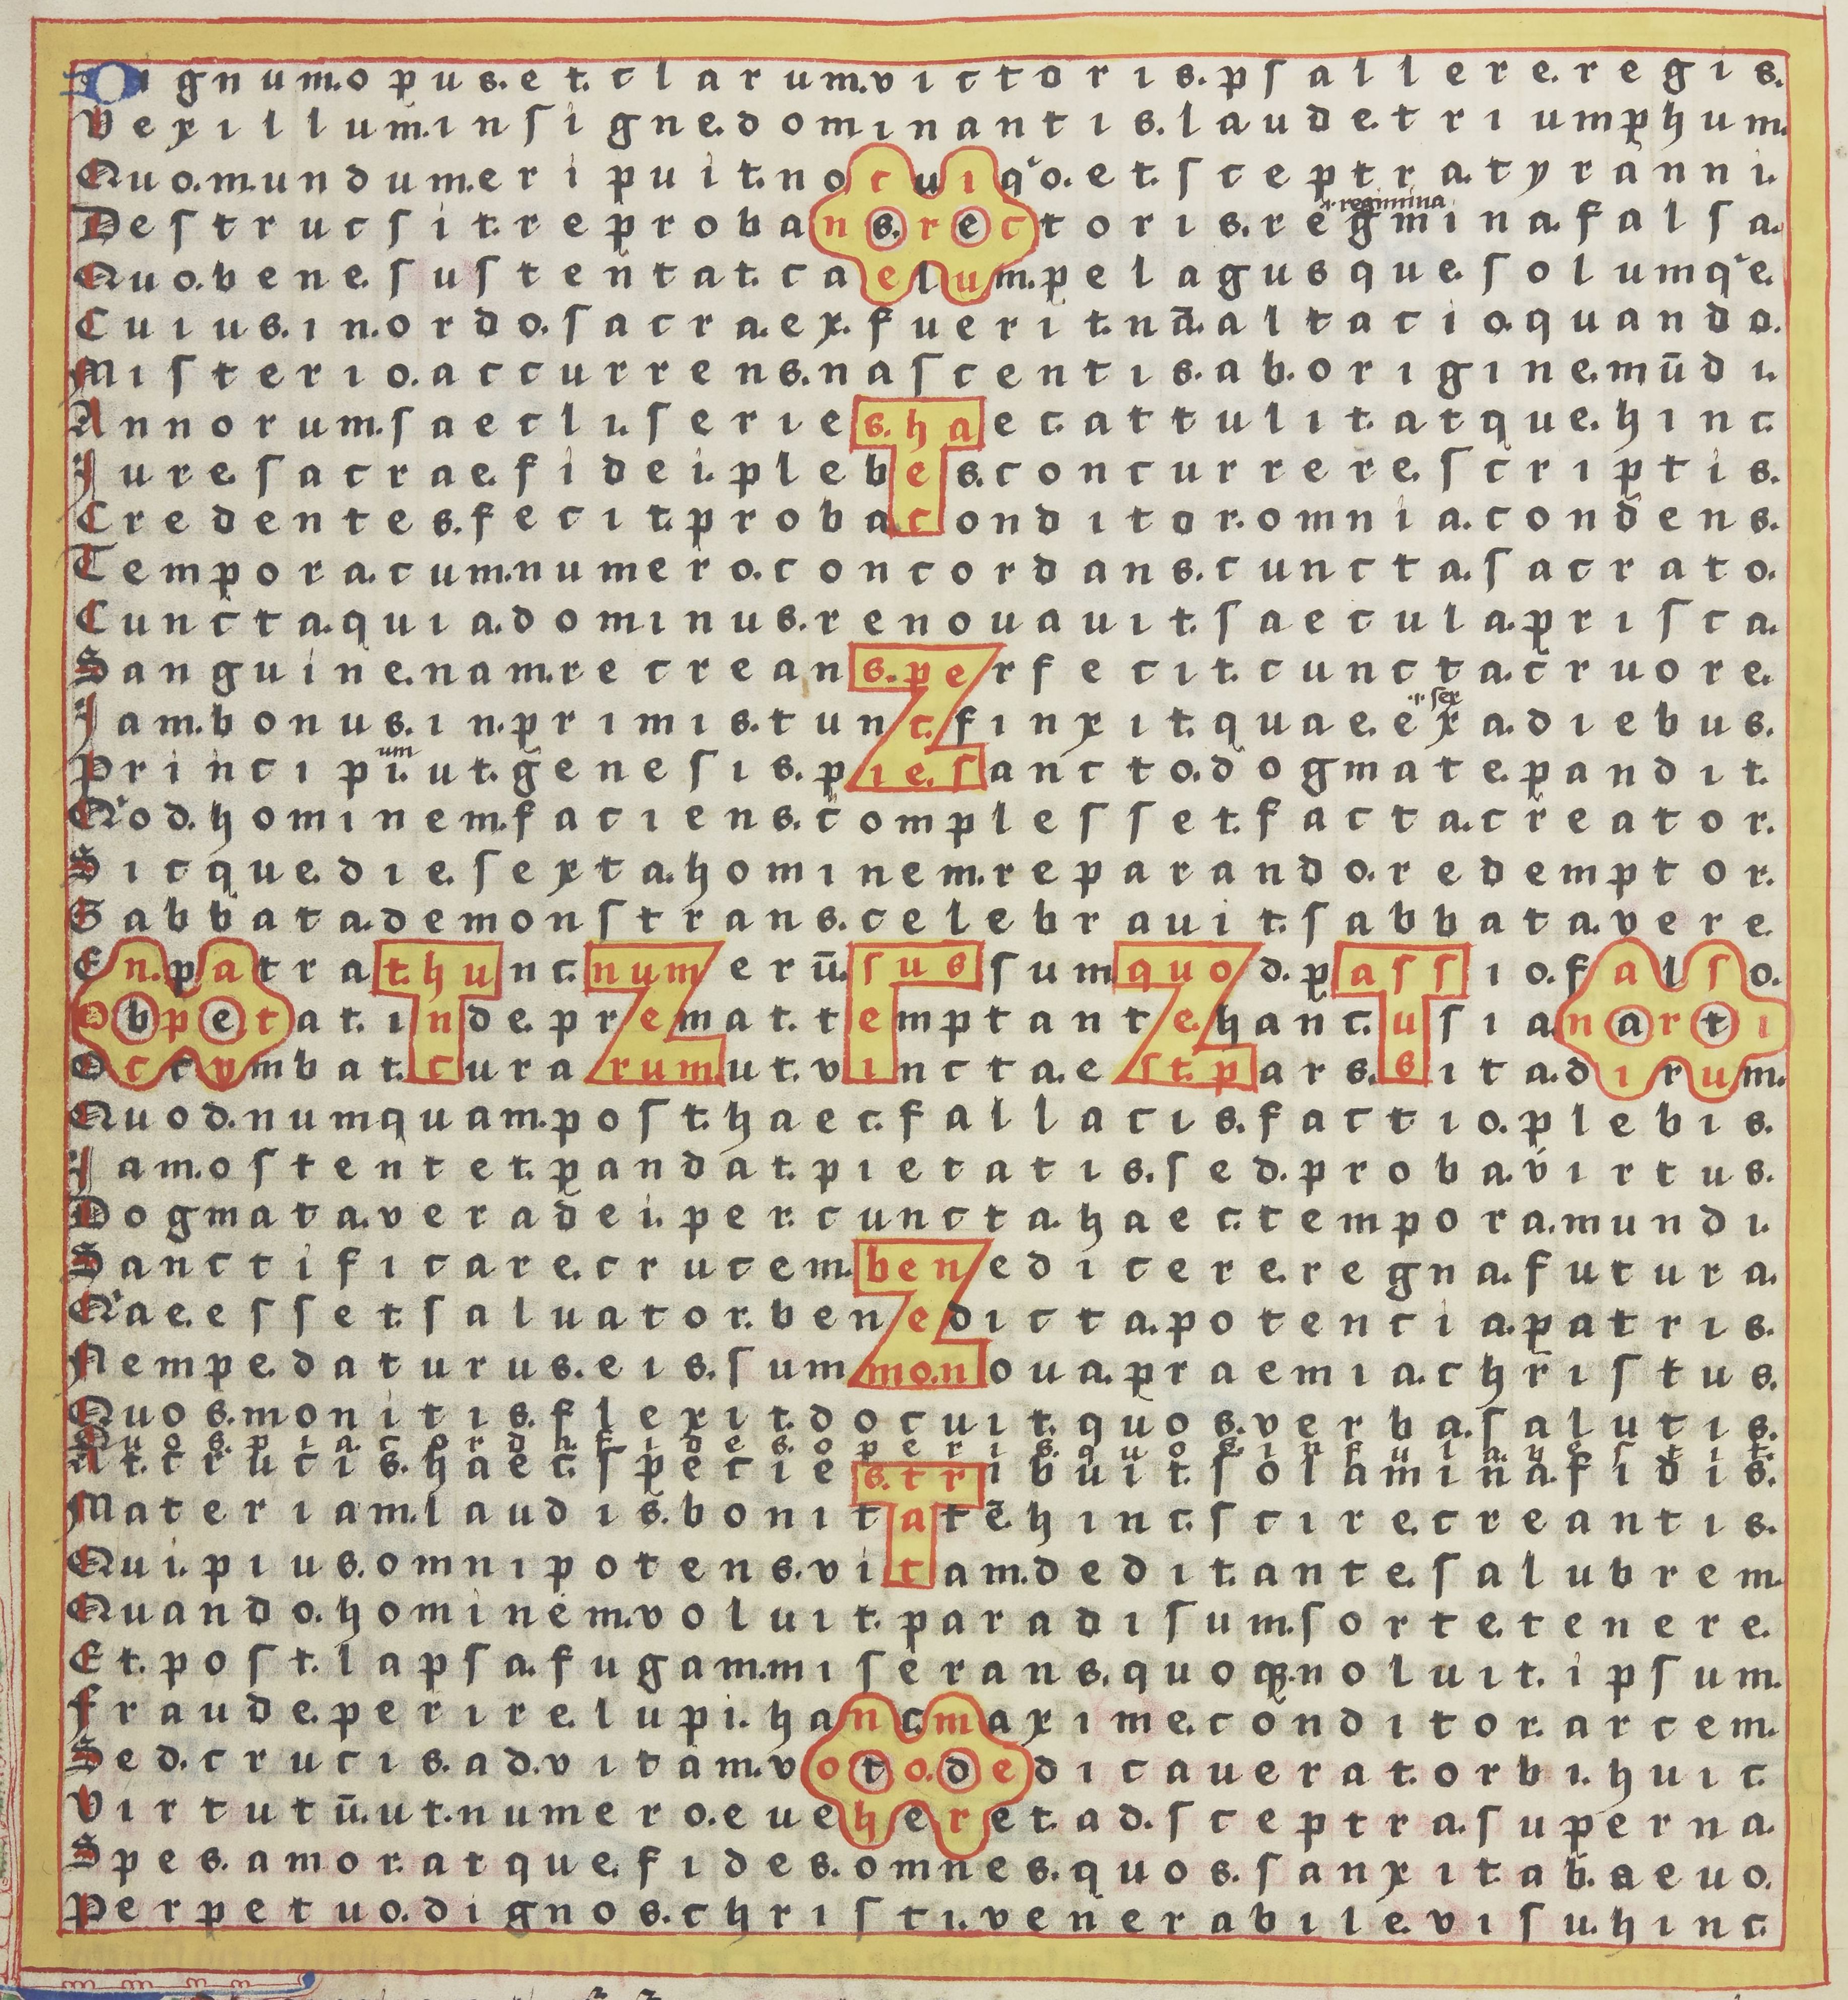 Dignum. opus. et. clarum. victoris. psallere. regis.
Vexillum. insigne. dominantis. laude. triumphum.
Quo. mundum. eripuit. nocuiq'o. et. sceptra. tyranni.
Destrucsit. reprobans. rectoris. regmina. falsa.
.i. regimina
Quo. bene. sustentat. caelum. pelagusque. solumq'e.
Cuius. in. ordo. sacra. ex. fuerit. nā. altacio. quando.
Misterio. accurrens. nascentis. ab. origine. mūdi.
Annorum. saecli. series. haec. attulit. atque. hinc.
Jure. sacrae. fidei. plebes. concurrere. scriptis.
Credentes. fecit. proba. conditor. omnia. condens.
Tempora. cum. numero. concordans. cuncta. sacrato.
Cuncta. quia. dominus. renouauit. saecula. prisca.
Sanguine. nam. recreans. perfecit. cuncta. cruore.
Jam. bonus. in. primis. tunc. finxit. quae. exa. diebus.
.i. sex
Principi. ut. genesis. pie. sancto. dogmate. pandit.
um
Q'od. hominem. faciens. complesset. facta. creator.
Sicque. die. sexta. hominem. reparando. redemptor.
Sabbata. demonstrans. celebrauit. sabbata. vere.
En. patrat. hunc. numerū. sussum. quod. passio. falso.
Obpetat. inde. premat. temptante. hanc. usia. narti
Occumbat. cura. rum. ut. vincta. est. pars. sita. dirum.
Quod. numquam. post. haec. fallacis. factio. plebis.
Jam. ostentet. pandat. pietatis. sed. proba. virtus.
Dogmata. vera. dei. per. cuncta. haec. tempora. mundi.
Sanctificare. crucem. benedicere. regna. futura.
Q'ae. esset. saluator. benedicta. potencia. patris.
Nempe. daturus. eis. summo. noua. praemia. christus.
Quos. monitis. flexit. docuit. quos. verba. salutis.
Quos. piacorda. fides. operis. quos. ipsuiauestit
At. crucis. haec. species. tribuit. solamina. fidis.
Materiam. laudis. bonitatē. hinc. scire. creantis.
Qui. pius. omnipotens. vitam. dedit. ante. salubrem.
Quando. hominem. voluit. paradisum. sorte. tenere.
Et. post. lapsa. fugam. miserans. quoq;. noluit. ipsum.
Fraude. perire. lupi. hanc. maxime. conditor. arcem.
Sed. crucis. ad. vitam. voto. dedicauerat. orbi. huic.
Virtutū. ut. numero. eueheret. ad. sceptra. superna.
Spes. amor. atque. fides. omnes. quos. sanxit. ab. aeuo.
Perpetuo. dignos. christi. venerabile. visu. hinc.